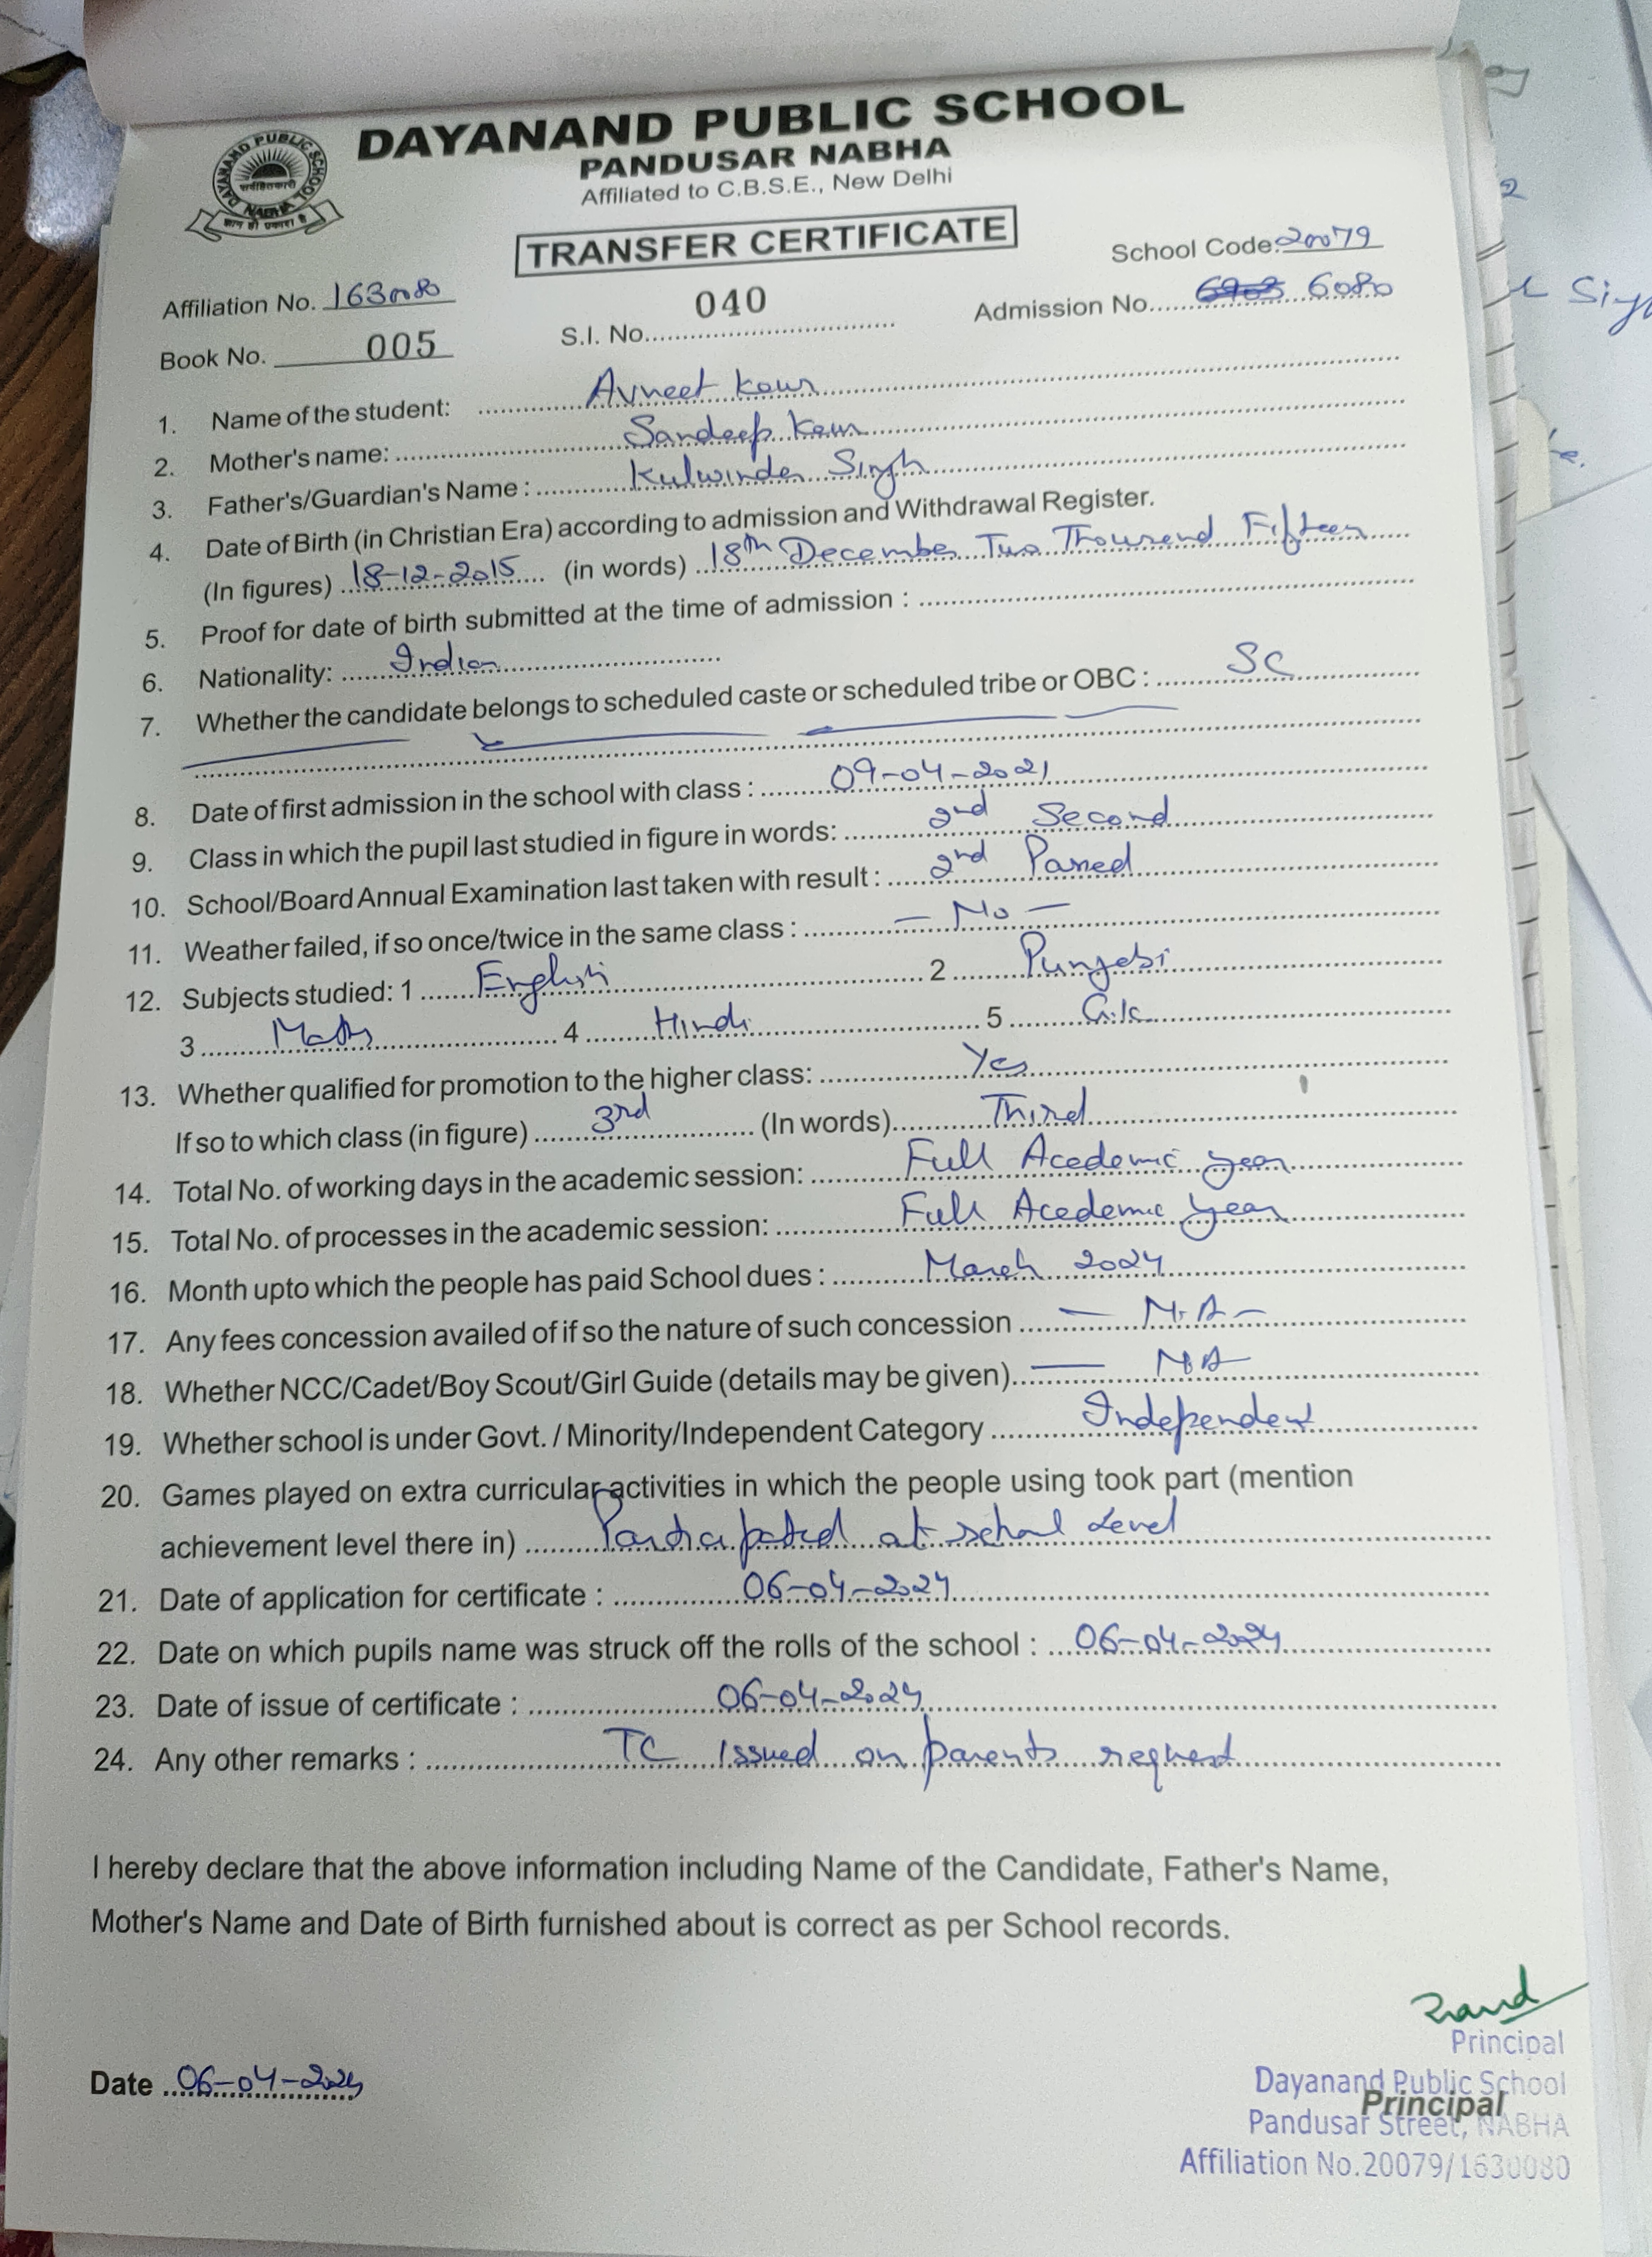 DAYANAND PUBLIC SCHOOL
PANDUSAR NABHA
Affiliated to C.B.S.E., New Delhi
DAYANAND PUBLIC SCHOOL
NABHA
TRANSFER CERTIFICATE
School Code: 20079
Affiliation No. 1630080
S.I. No. 040
Admission No. 6080
Book No. 005
1. Name of the student: Avneet Kaur
2. Mother's name: Sandeep Kaur
3. Father's/Guardian's Name : Kulwinder Singh
4. Date of Birth (in Christian Era) according to admission and Withdrawal Register.
(In figures) 18-12-2015 (in words) 18th December Two Thousand Fifteen
5. Proof for date of birth submitted at the time of admission :
6. Nationality: Indian
7. Whether the candidate belongs to scheduled caste or scheduled tribe or OBC : SC
8. Date of first admission in the school with class : 09-04-2021
9. Class in which the pupil last studied in figure in words: 2nd Second
10. School/Board Annual Examination last taken with result : 2nd Passed
11. Weather failed, if so once/twice in the same class : - No -
12. Subjects studied: 1 English 2 Punjabi
3 Math 4 Hindi 5 G.K
13. Whether qualified for promotion to the higher class: Yes
If so to which class (in figure) 3rd (In words) Third
14. Total No. of working days in the academic session: Full Acedemic year
15. Total No. of processes in the academic session: Full Acedemic year
16. Month upto which the people has paid School dues : March 2024
17. Any fees concession availed of if so the nature of such concession - N.A -
18. Whether NCC/Cadet/Boy Scout/Girl Guide (details may be given) - NA -
19. Whether school is under Govt. / Minority/Independent Category Independent
20. Games played on extra curricular activities in which the people using took part (mention
achievement level there in) Participated at school Level
21. Date of application for certificate : 06-04-2024
22. Date on which pupils name was struck off the rolls of the school : 06-04-2024
23. Date of issue of certificate : 06-04-2024
24. Any other remarks : TC Issued on parents request
I hereby declare that the above information including Name of the Candidate, Father's Name,
Mother's Name and Date of Birth furnished about is correct as per School records.
Date 06-04-2024
Principal
Dayanand Public School
Principal
Pandusar Street, NABHA
Affiliation No.20079/1630080